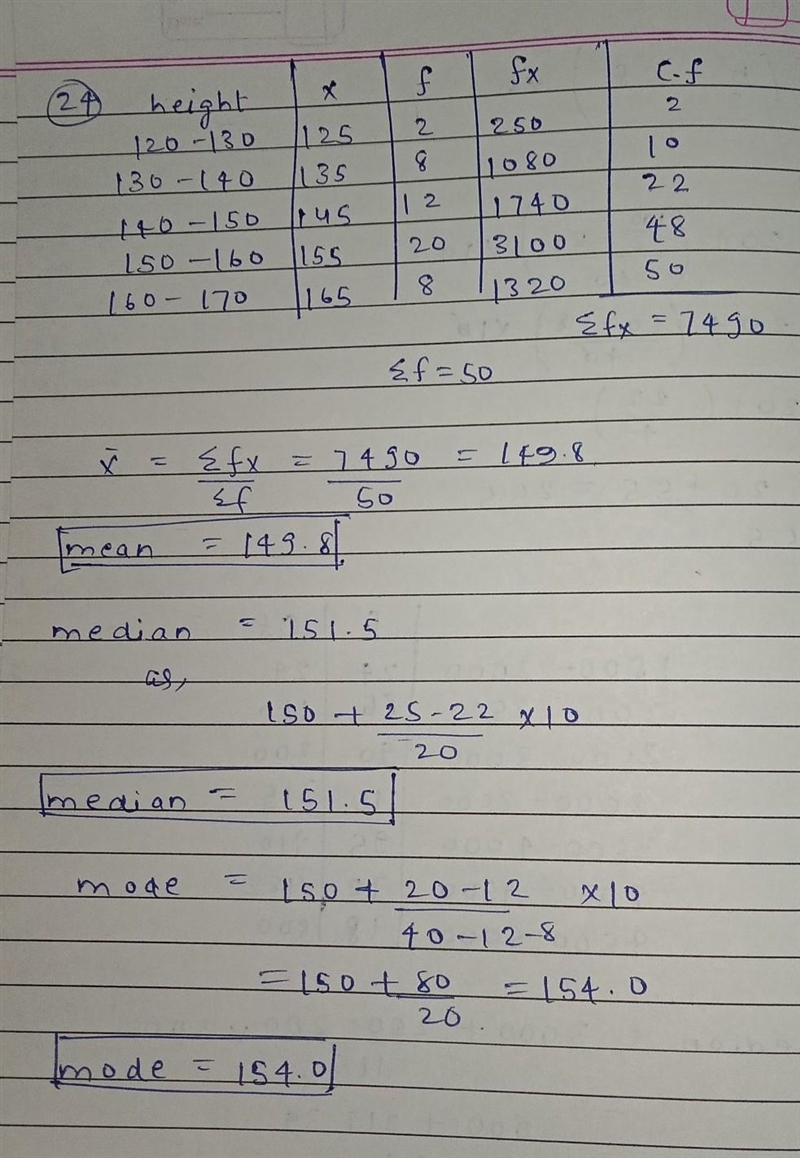 24 height x f fx C.f
120-130 125 2 250 2
130-140 135 8 1080 10
140-150 145 12 1740 22
150-160 155 20 3100 48
160-170 165 8 1320 50
Σfx = 7490
Σf = 50
x̄ = Σfx/Σf = 7490/50 = 149.8
mean = 149.8
median = 151.5
as,
150 + 25-22/20 x10
median = 151.5
mode = 150 + 20-12/40-12-8 x10
= 150 + 80/20 = 154.0
mode = 154.0